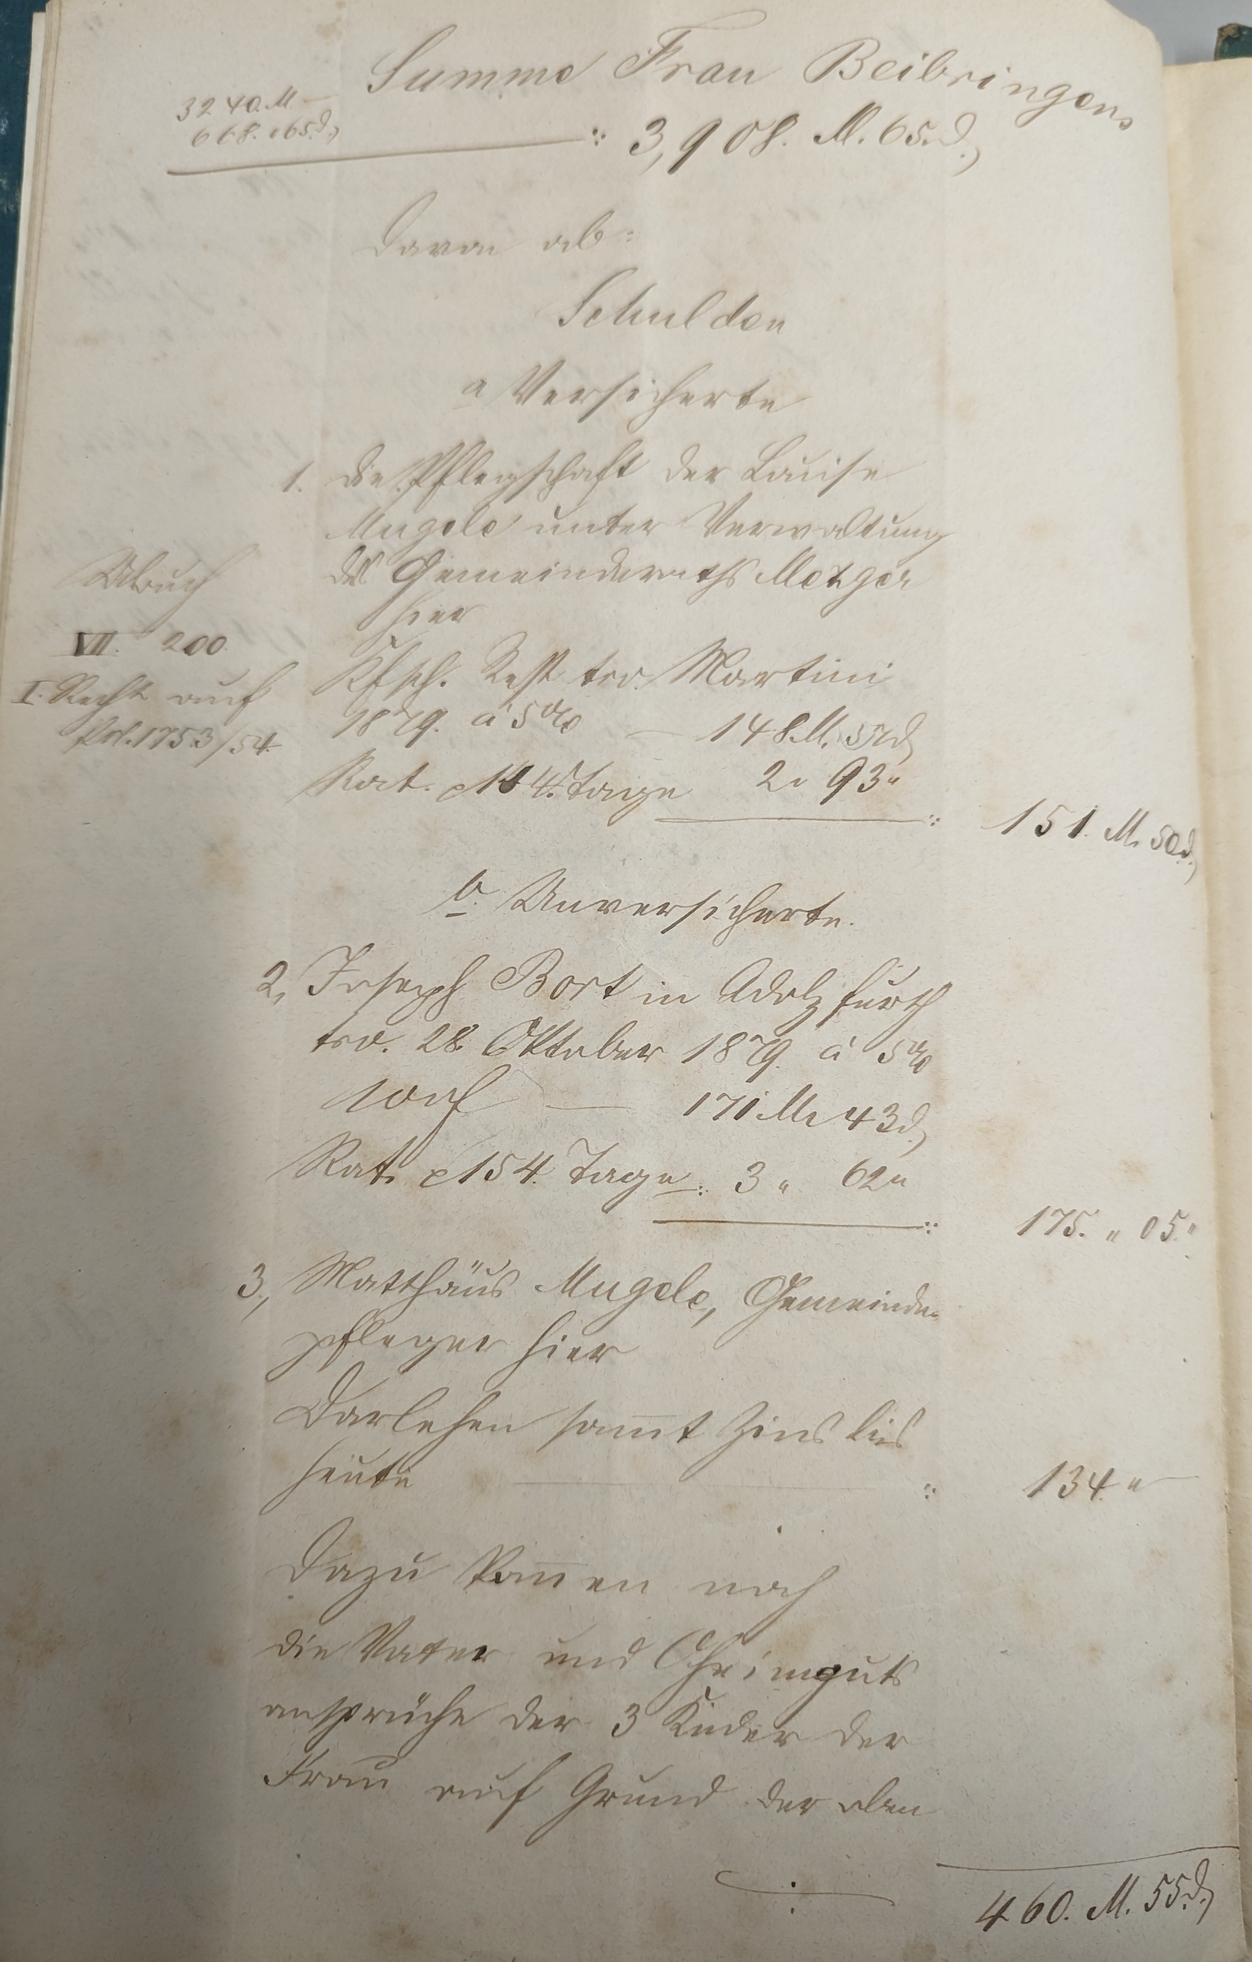 Summe Frau Beibringens
3240. M –
668. " 65 d,
: 3,908. M. 65. d,
Davon ab:
Schulden
a Versicherte
1. die Pflegschaft der Louise
Mugele unter Verwaltung
des Gemeinderaths Metzger
hier
Ubuch
VII. 200.
I. Recht auf
Prl. 1753/54.
Kfsch. Rest tro. Martini
1879. á 5% — 148 M. 57 d,
Rat. p 144. Tage 2 " 93 "
: 151. M. 50 d,
b. Unversicherte.
2, Joseph Bort in Adolzfurth
tro. 28. Oktober 1879. á 5%
— 171 M. 43 d,
Rat. p 154. Tage : 3 " 62 "
: 175. " 05. "
3, Matthäus Mugele, Gemeinde-
pfleger hier
Darlehen sammt Zins bis
heute : 134. " —
Dazu kommen noch
die Vater und guts
ansprüche der 3 Kinder der
Frau auf Grund der oben
: 460. M. 55. d,